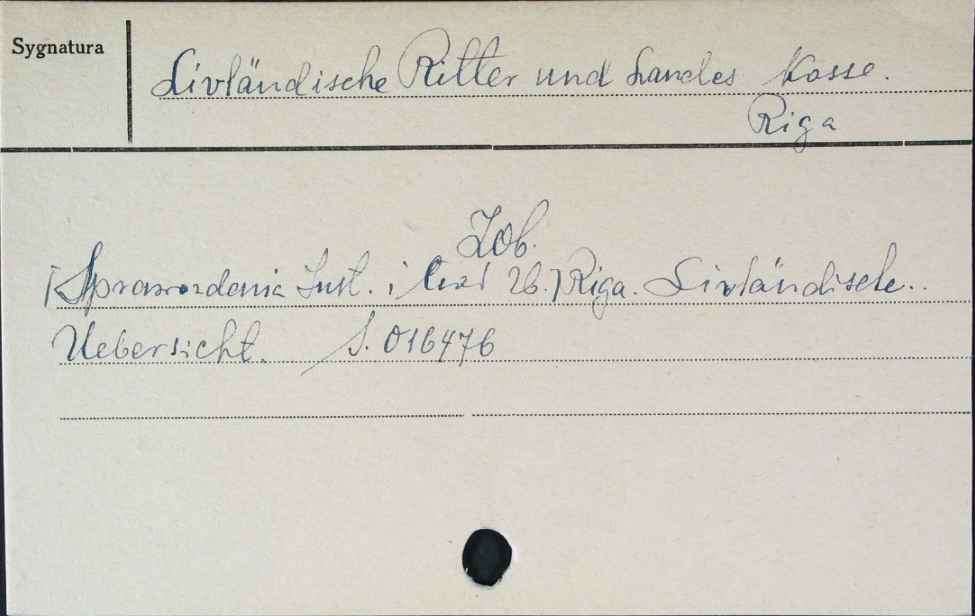 Sygnatura
Livländische Ritter und Landes Kasse.
Riga
Zob.
[Sprawozdania Inst. i Tow. Zb.] Riga. Livländische..
Uebersicht. S. 016476